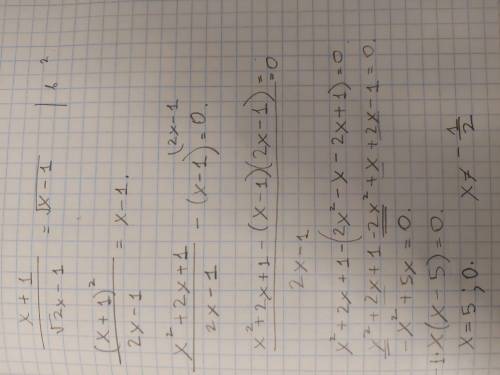 x+1/√2x-1 = √x-1 | b²
(x+1)²/2x-1 = x-1.
x²+2x+1/2x-1 - (x-1)(2x-1 = 0.
x²+2x+1-(x-1)(2x-1)/2x-1 = = 0
x²+2x+1-(2x²-x-2x+1)=0.
x²+2x+1-2x²+x+2x-1=0.
-x²+5x=0.
-1·x(x-5)=0.
x=5;0. x≠-1/2